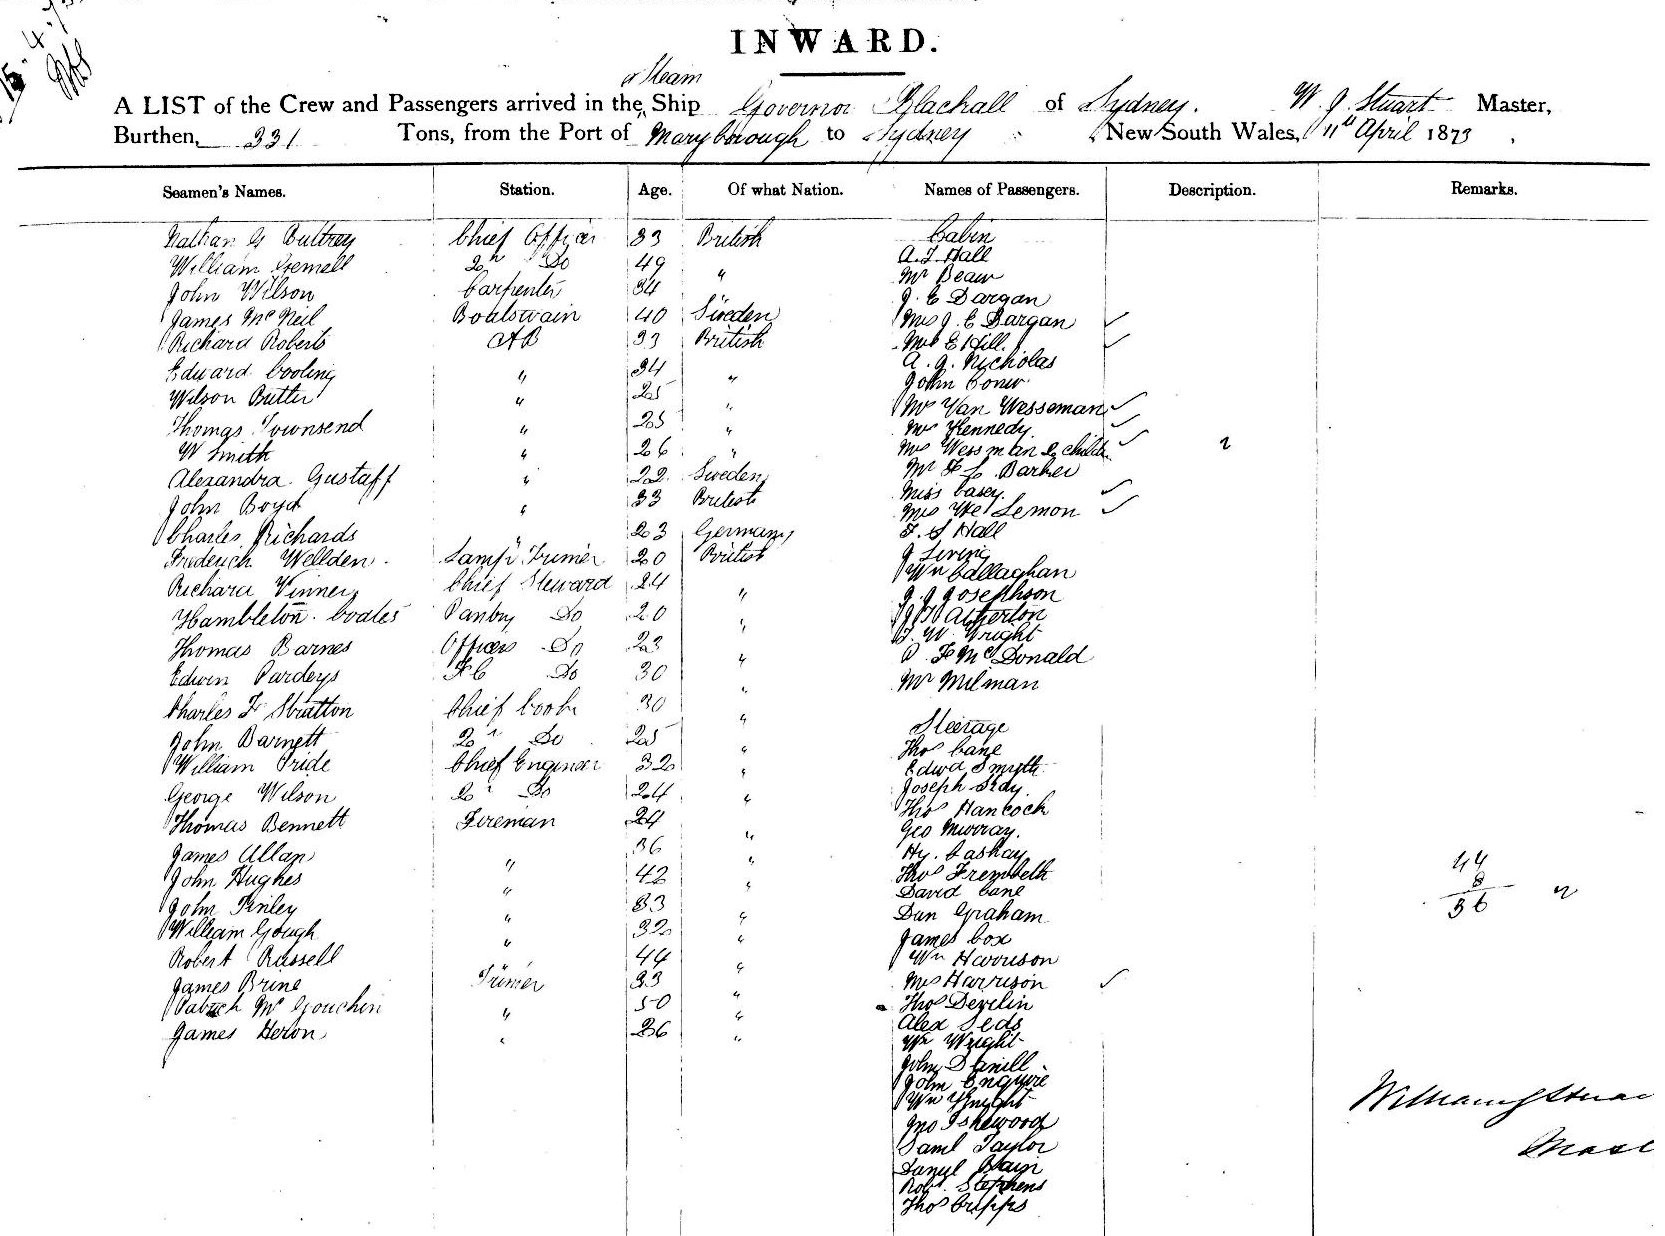 15.4.73
INWARD.
or Steam
A LIST of the Crew and Passengers arrived in the Ship Governor Blackall of Sydney. W. J. Stuart Master,
Burthen, 331 Tons, from the Port of Maryborough to Sydney New South Wales, 11th April 1873
Seamen's Names. Station. Age. Of what Nation. Names of Passengers. Description. Remarks.
Nathan G Buttrey Chief Officer 33 British Cabin
William Gemell 2n Do 49 " A. J. Hall
John Wilson Carpenter 34 Mr Beaw
James McNeil Boatswain 40 Sweden J. E Dargan
Richard Roberts AB 33 British Mrs J. E Dargan
Edward Cooling " 34 " Mrs E Hill.
Wilson Butler " 25 " A. G. Nicholas
Thomas Townsend " 25 " John Conw
W Smith " 26 " Mrs Van Wesseman
Alexandra Gustaff " 22 Sweden Mrs Kennedy
John Boyd " 33 British Mrs Wessman & child
Charles Richards " 23 Germany Mr F L Barker
Frederich Wellden Lamp Trimer 20 British Miss Casey
Richard Vinner Chief Steward 24 " Mrs We Lemon
Hambleton Coates Pantry Do 20 " F. S Hall
Thomas Barnes Officers Do 23 " J Living
Edwin Pardeys F.C Do 30 " Wm Callaghan
Charles F Stratton Chief Cook 30 " J. J Josephson
John Barnett 2n Do 25 " J H Atherton
William Pride Chief Engineer 32 " F. W. Wright
George Wilson 2n Do 24 " P. F McDonald
Thomas Bennett Fireman 24 " Mr Milman
James Allan " 36 " Steerage
John Hughes " 42 " Thos Cane
John Finley " 33 " Edwd Smyth
William Gough " 32 " Joseph Stay
Robert Russell " 44 " Thos Hancock
James Brine Trimer 33 " Geo Murray.
Patrick McGouchin " 50 " Hy. Cashay
James Heron " 36 " Thos Trembeth
David Cane
Dan Graham
James Cox
Wm Harrison
Mrs Harrison
Thos Devilin
Alex Seds
Wm Wright
John Daniell
John Enquire
Wm Knight
Jno Ishewood
Saml Taylor
Danyl Bain
Robt. Stephens
Thos Cripps
44
8
36
William J Stuar
Mast